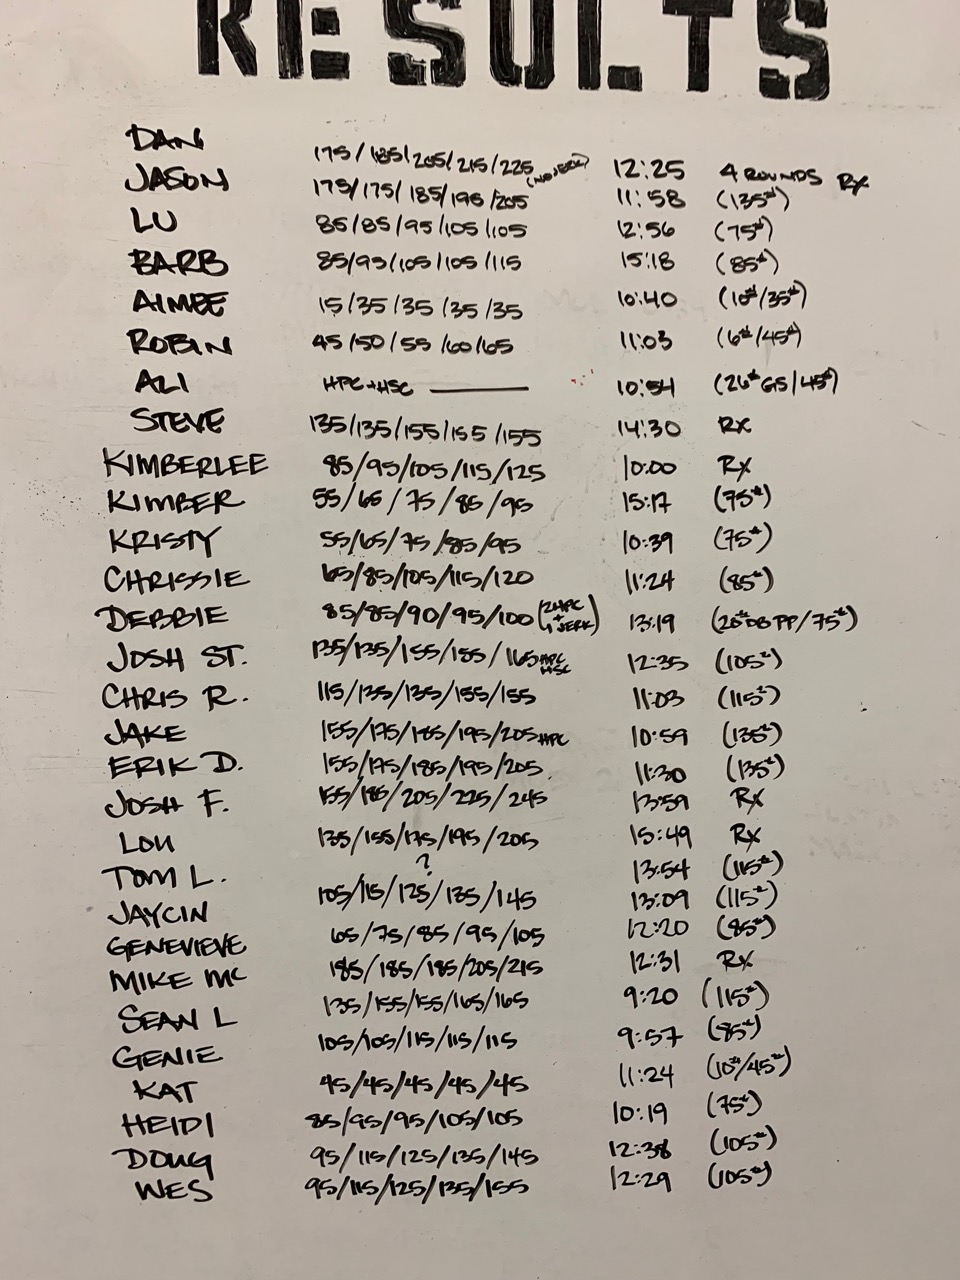 RESULTS
DAN 175/185/205/215/225 (NO JERK) 12:25 4 ROUNDS RX
JASON 175/175/185/195/205 11:58 (135#)
LU 85/85/95/105/105 12:56 (75#)
BARB 85/95/105/105/115 15:18 (85#)
AIMEE 15/35/35/35/35 10:40 (10#/35#)
ROBIN 45/50/55/60/65 11:03 (6#/45#)
ALI HPC+HSC —— 10:54 (26# GS/45#)
STEVE 135/135/155/155/155 14:30 RX
KIMBERLEE 85/95/105/115/125 10:00 RX
KIMBER 55/65/75/85/95 15:17 (75#)
KRISTY 55/65/75/85/95 10:39 (75#)
CHRISSIE 65/85/105/115/120 11:24 (85#)
DEBBIE 85/85/90/95/100 (2HPC + 1 JERK) 13:19 (20# DB PP/75#)
JOSH ST. 135/135/155/155/165 HPC HSC 12:35 (105#)
CHRIS R. 115/135/135/155/155 11:03 (115#)
JAKE 155/175/185/195/205 HPC 10:59 (135#)
ERIK D. 155/175/185/195/205 11:30 (135#)
JOSH F. 155/185/205/225/245 13:59 RX
LOU 135/155/175/195/205 15:49 RX
TOM L. ? 13:54 (115#)
JAYCIN 105/115/125/135/145 13:09 (115#)
GENEVIEVE 65/75/85/95/105 12:20 (85#)
MIKE MC 185/185/185/205/215 12:31 RX
SEAN L 135/155/155/165/165 9:20 (115#)
GENIE 105/105/115/115/115 9:57 (85#)
KAT 45/45/45/45/45 11:24 (10#/45#)
HEIDI 85/95/95/105/105 10:19 (75#)
DOUG 95/115/125/135/145 12:38 (105#)
WES 95/115/125/135/155 12:29 (105#)